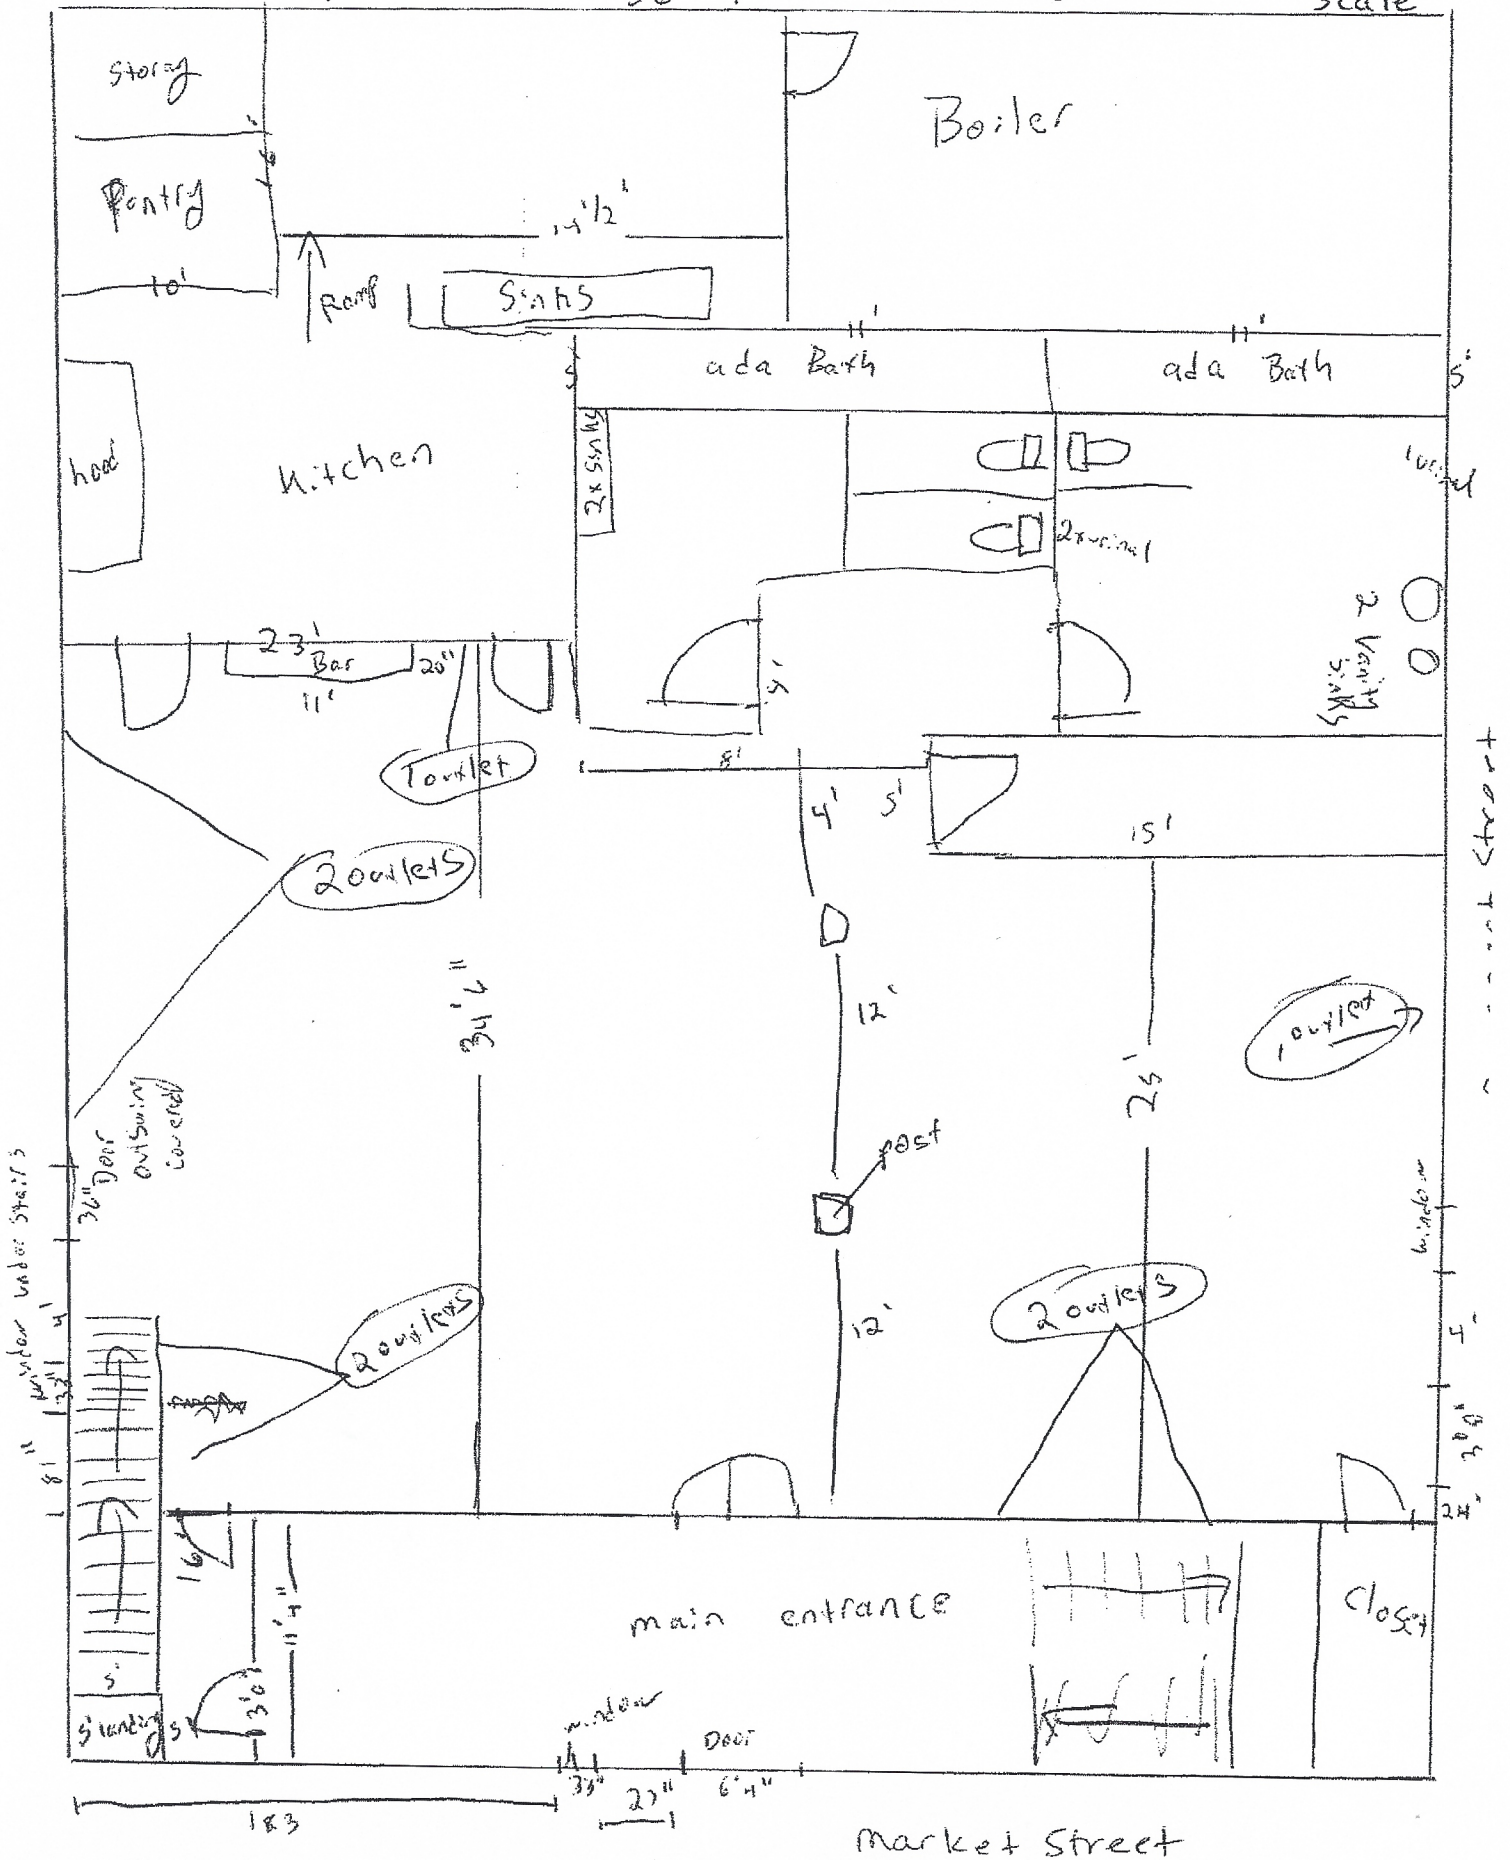 scale
Storag
Boiler
Pantry
10'
Ramp
Sinks
11'
11'
ada Bath
ada Bath
5'
5'
hood
Kitchen
2x sinks
1 urinal
2x urinal
2 Vanity
Sinks
23'
Bar
20"
11'
5'
1 outlet
8'
4'
5'
15'
2 outlets
34' 6"
12'
25'
1 outlet
Door
outswing
covered
36"
post
window
window under stairs
2 outlets
12'
2 outlets
4'
4'
32"
8'
3'8"
24"
16'
11'4"
main entrance
Closet
5'
3'0"
5' landing
5'
window
Door
33"
27"
6'4"
183
Market Street